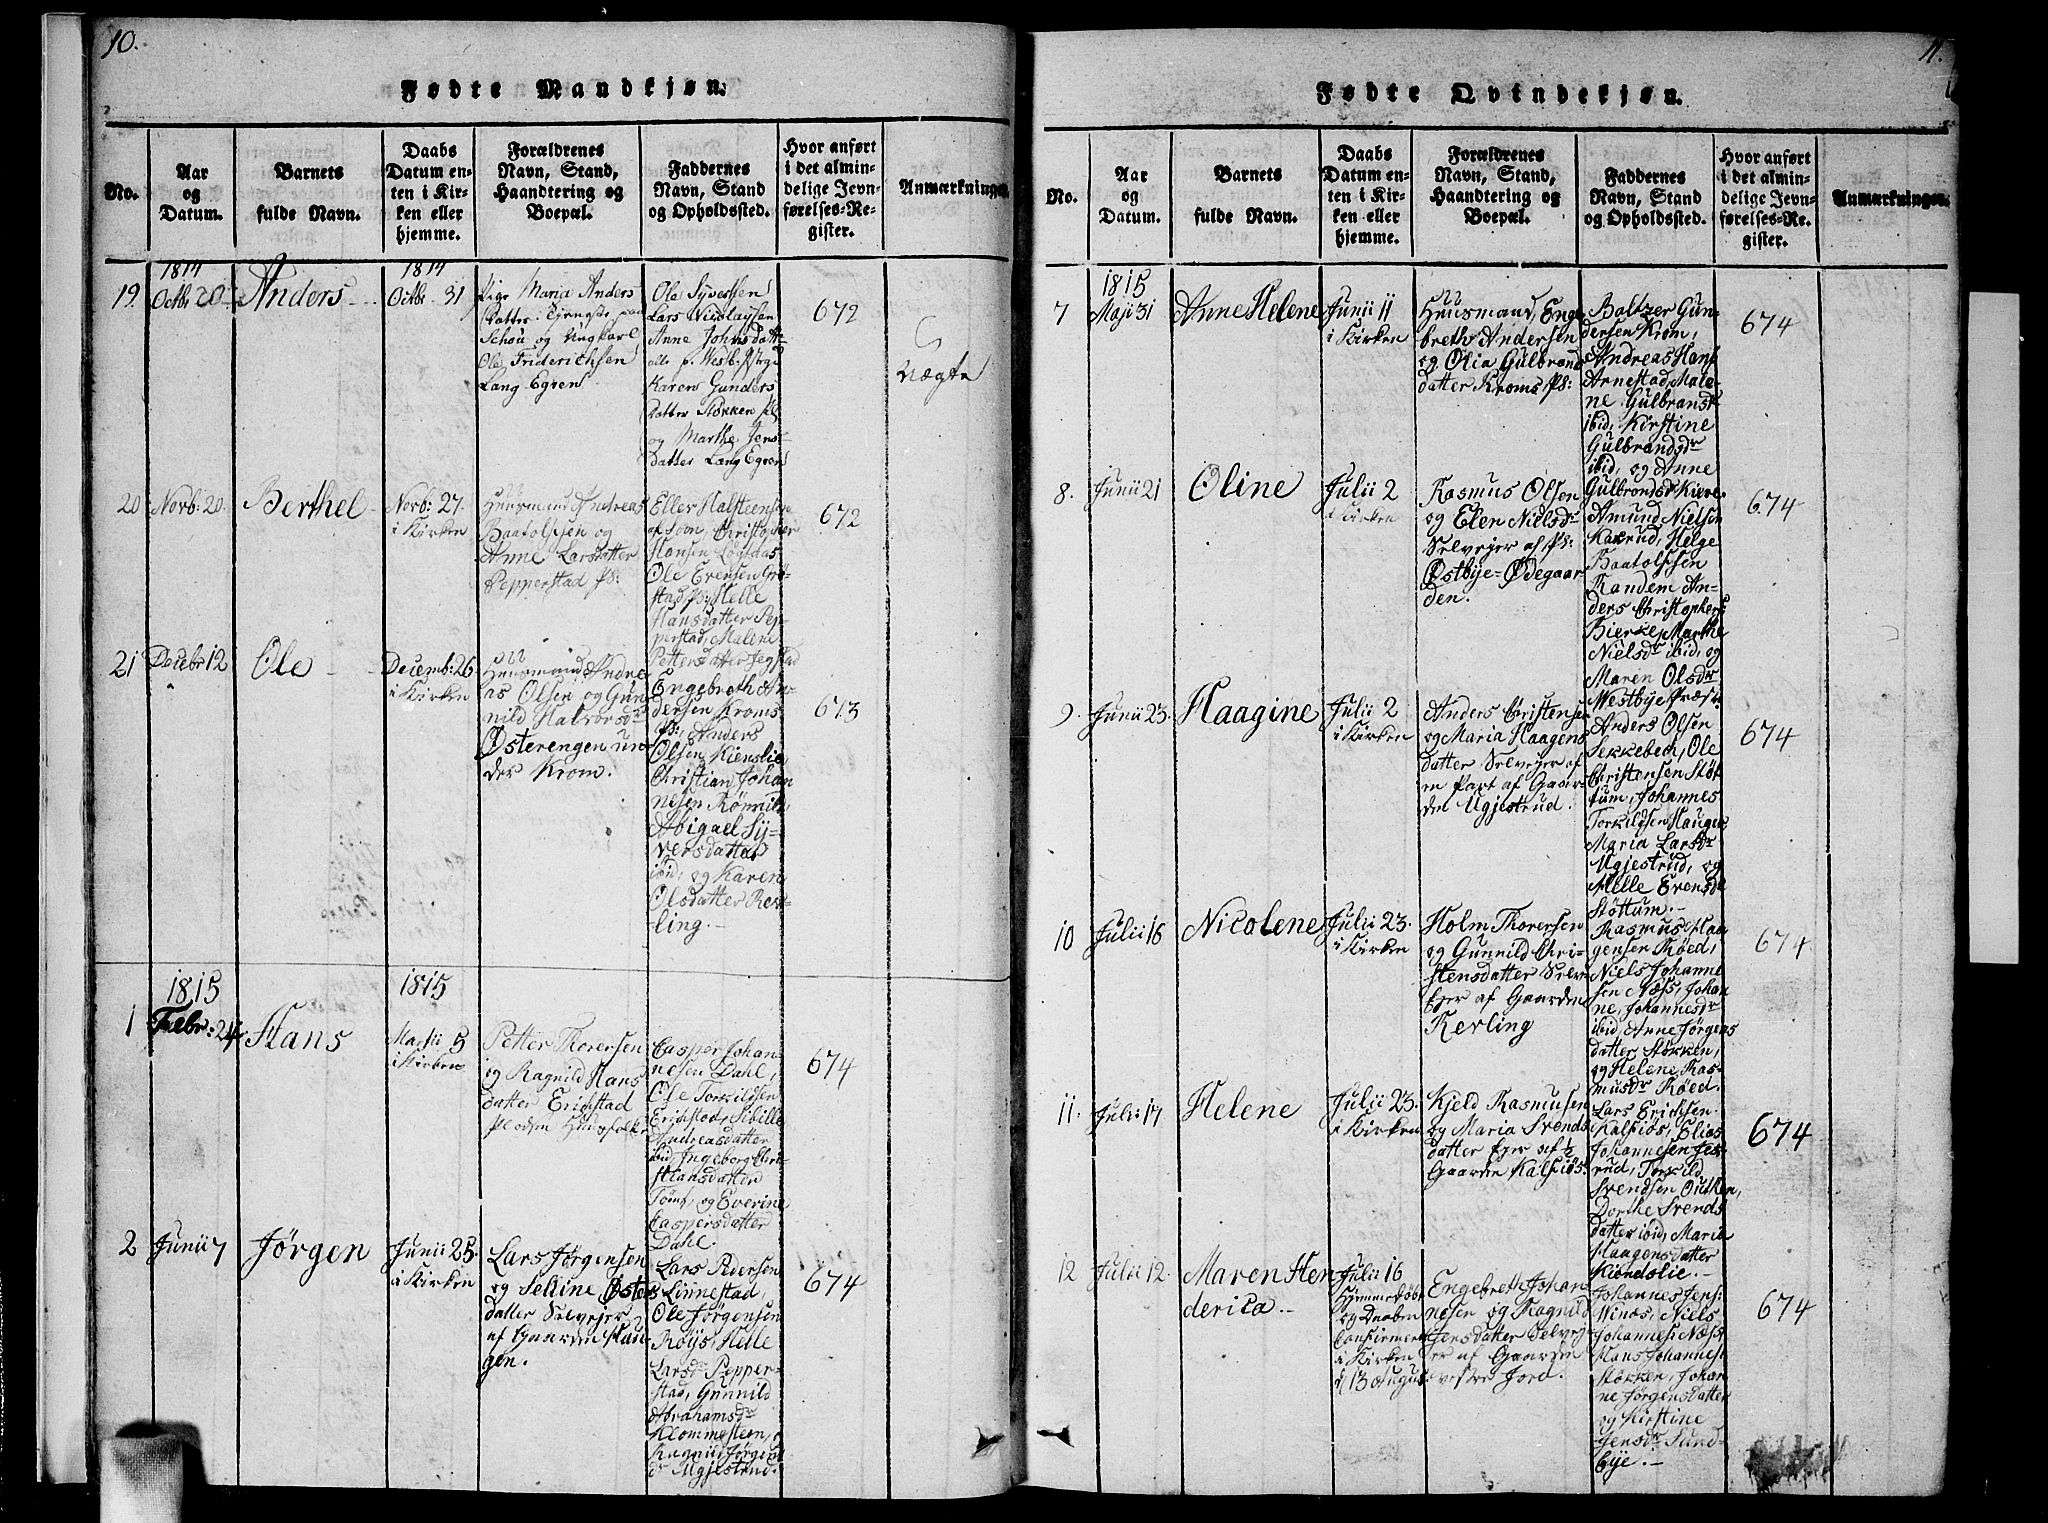 10.
Fødte Mandkjøn.
No.
Aar
og
Datum.
Barnets
fulde Navn.
Daabs
Datum en-
ten i Kir-
ken eller
hjemme.
Forældrenes
Navn, Stand,
Haandtering og
Boepæl.
Faddernes
Navn, Stand
og Opholdssted.
Hvor anført
i det almin-
delige Jevn-
førelses-Re-
gister.
Anmærkninger.
19.
1814
Octbr 20
Anders
1814
Octbr 31
Pige Maria Anders
datter
Schou og Ungkarl
Ole Friderichsen
Lang Egren
Ole Syversen
Lars Nicolaysen
Anne Johnsdatt
Karen Gunders
datter Stökken
og Marthe Jens
datter Lang Egren
672
Uægte
20
Norb: 20.
Berthel
Norb: 27.
i Kirken
Huusmand Andreas
Baatolfsen og
Anne Larsdatter
Pepperstad Ps:
Eller Halsteensen
Christopher
Hansen
Ole Evensen Grö-
stad, Helle
Hansdatter Pep-
perstad, Malene
Pettersdatter Jegstad
672
21
Decbr 12
Ole
Decemb: 26
i Kirken
Huusmand Andre
as Olsen og Gun
nild Halvorsdr
Østerengen un-
der Krom.
Engebreth An-
dersen Kroms
Ps:, Anders
Olsen Kienslie
Christian Johan
nesen Rönnild
Abigael Sy-
versdatter
ibid: og Karen
Olsdatter Ker-
ling.
673
1
1815
Febr: 24
Hans
1815
Martii 5
i Kirken
Petter Thorersen
og Ragnild Hans
datter Erichstad
Casper Johan
nesen Dahl,
Ole Torkildsen
Erichstad, Sibille
Andreasdatter
ibid, Ingeborg Chri-
stiansdatter
Tomt, og Everine
Caspersdatter
Dahl.
674
2
Junii 7
Jörgen
Junii 25.
i Kirken
Lars Jörgensen
og Selline Østens
datter Selvejer
af Gaarden Hau
gen.
Lars Pedersen
Linnestad,
Ole Jörgensen
Roijs, Helle
Larsdr Pepper-
stad, Gunnild
Abrahamsdr
Klommesteen, o
Ragnild Jörgens
dr Ugjestrud.
674
11.
Fødte Qvindekjøn.
No.
Aar
og
Datum.
Barnets
fulde Navn.
Daabs
Datum en-
ten i Kir-
ken eller
hjemme.
Forældrenes
Navn, Stand,
Haandtering og
Boepæl.
Faddernes
Navn, Stand
og Opholdssted.
Hvor anført
i det almin-
delige Jevn-
førelses-Re-
gister.
Anmærkninger.
7
1815
Maji 31
Anne Helene
Junii 11
i Kirken
Huusmand Enge
breth Andersen
og Olia Gulbrands
datter Kroms Ps:
Baltzer Gun
dersen Krom,
Andreas Hans
Arnestad, Male
ne Gulbransd
ibid, Kirstine
Gulbrandsdr
ibid, og Anne
Gulbrandsdr
674
8.
Junii 21
Oline
Julii 2
i Kirken
Rasmus Olsen
og Elen Nielsdr
Selvejer af Ps:
Østbye-Ødegaar
den.
Amund Nielsen
Haxrud, Helge
Baatolfsen
Randem An-
ders Christophers
Bierke, Marthe
Nielsdr ibid, og
Maren Olsdr
Westbye Præst:
674
9.
Junii 23.
Haagine
Julii 2
i Kirken
Anders Christensen
og Maria Haagens
datter Selvejer af
en Part af Gaar-
den Ugjestrud.
Anders Olsen
Sekkebech, Ole
Christensen Stöt
tum, Johannes
Torkildsen Haugen
Maria Larsdr
Ugjestrud, og
Helle Evensdr
Stöttum.
674
10
Julii 16
Nicolene
Julii 23.
i Kirken
Holm Thorersen
og Gunnild Chri-
stensdatter Selv-
ejer af Gaarden
Kerling
Rasmus Haa
gensen Röed,
Niels Johanne
sen Næss, Johan
ne, Johannesdr
ibid, Anne Jörgens
datter Stökken,
og Helene Ras
musdr Röed.
674
11.
Julii 17
Helene
Julii 23.
i Kirken
Kjeld Rasmusen
og Maria Svends
datter Ejer af ½
Gaarden Kalsiös.
Lars Erichsen
Kalsiös, Elias
Johannesen Jes
rud, Torkild
Svendsen Outken,
Dorthe Svends
datter ibid, Maria
Haagensdatter
Kiendslie.
674
12
Julii 12.
Maren Hen
derica.
Julii 16
Hjemmedöbt
og Daaben
Confirmeret
i Kirken
d 13 August
Engebreth Johan
nesen og Ragnild
Jensdatter Selvej
er af Gaarden
vestre Jord.
Johannes Jens:
Winæs, Niels
Johannes: Næss
Hans Johannes:
Stökken, Johan
ne Jörgensdatter
og Kirstine
Jensdr Sund-
bye.
674